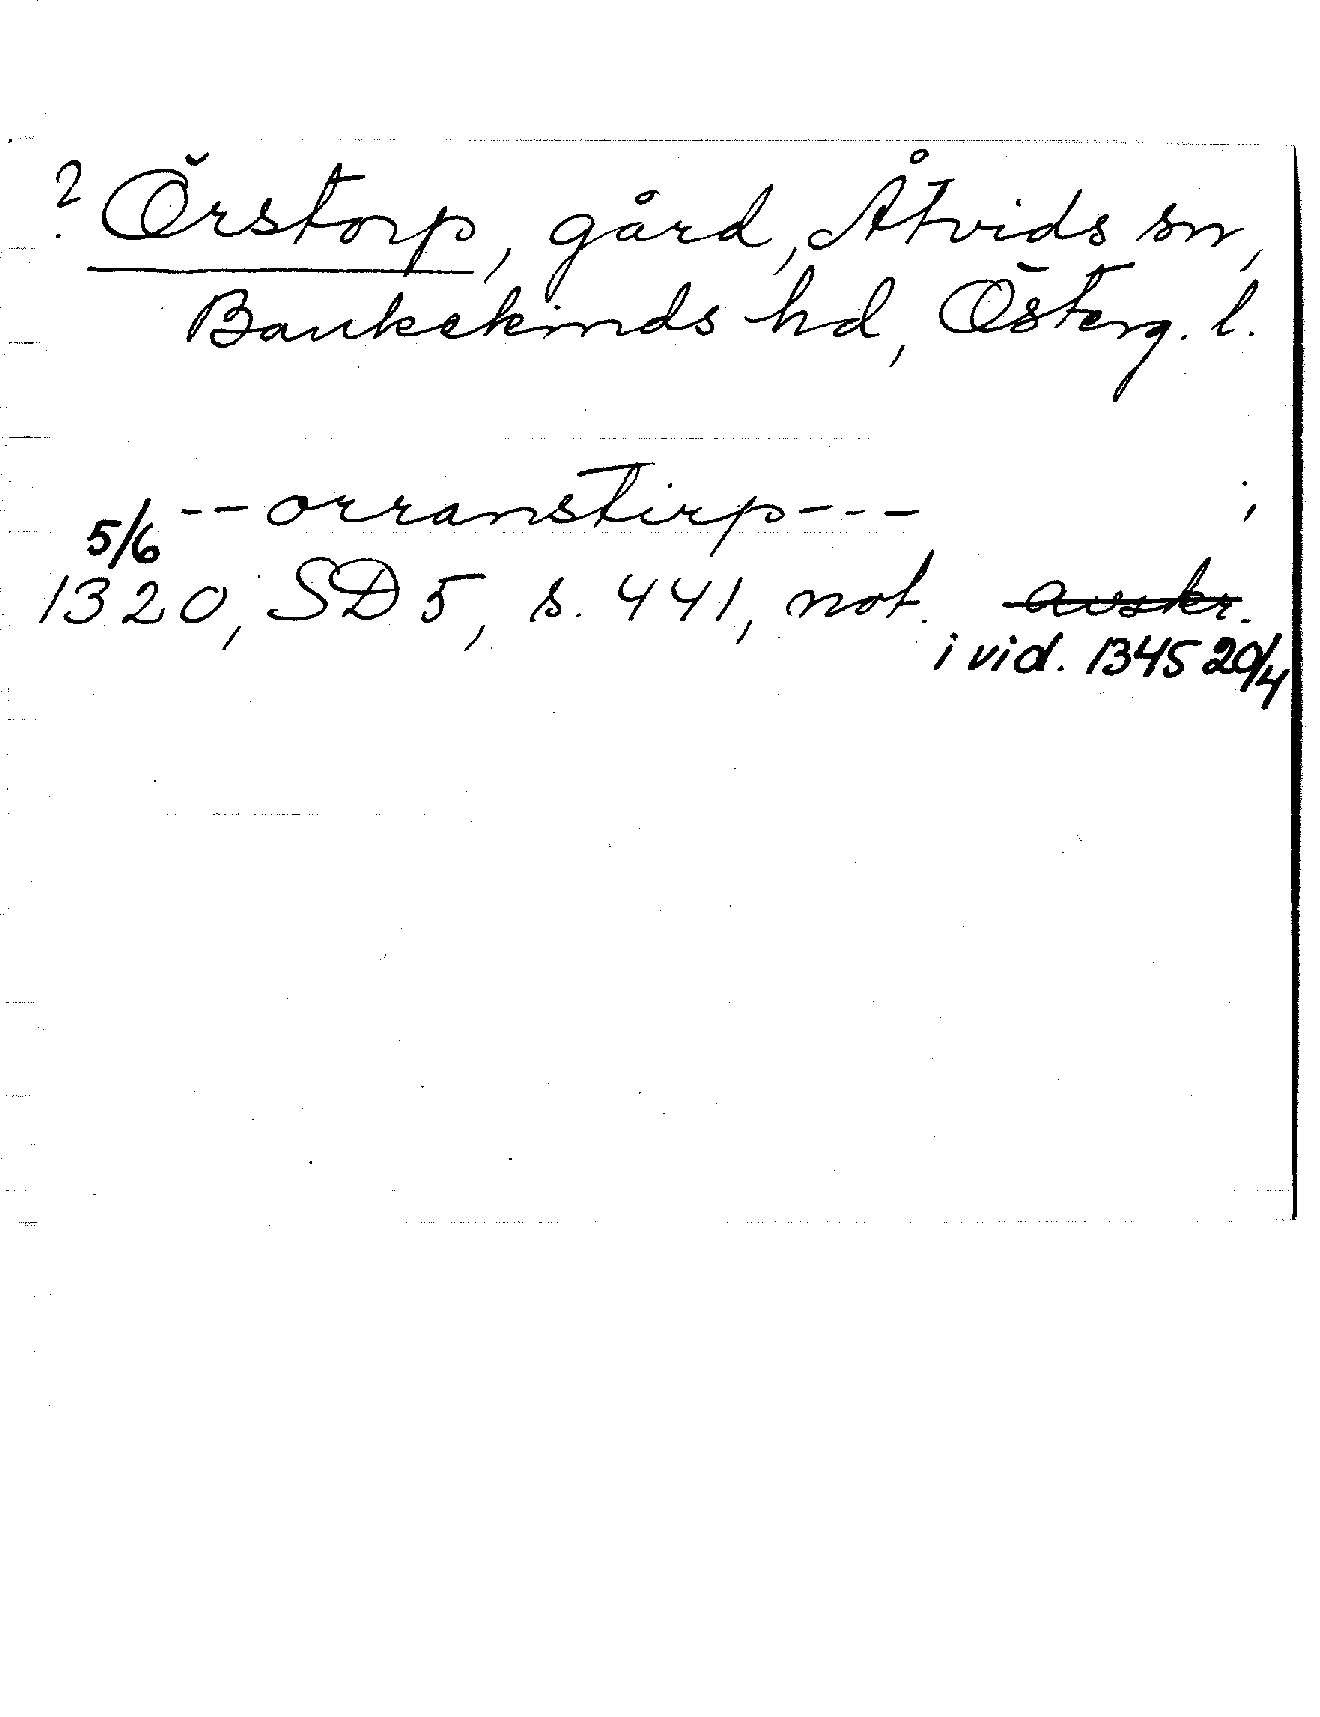 ? Örstorp, gård, Åtvids sn,
Bankekinds hd, Österg. l.
--orranstirp--- ;
5/6
1320, SD 5, s. 441, not. avskr.
i vid. 1345 20/4